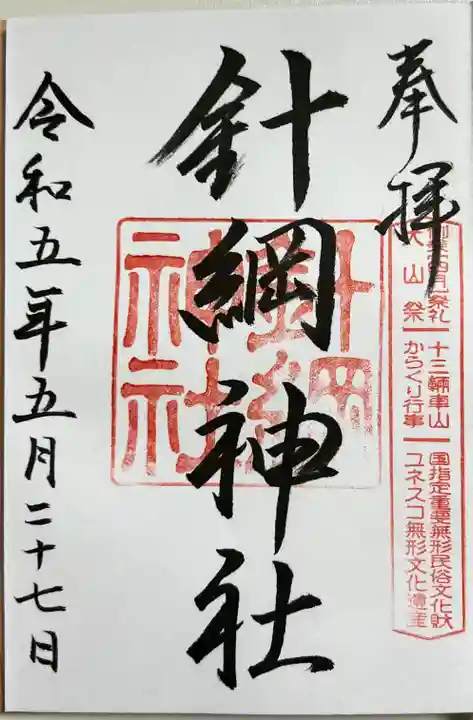 奉拝
創業四百年祭礼
犬山祭
十三輌車山
からくり行事
国指定重要無形民俗文化財
ユネスコ無形文化遺産
針綱神社
針綱
神社
令和五年五月二十七日